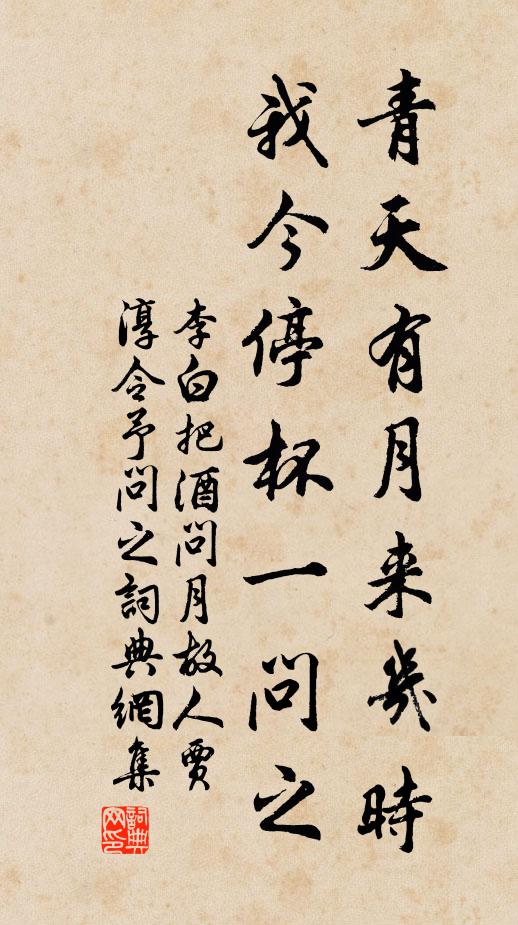 青天有月来幾時
我今停杯一問之
李白把酒問月故人賈
淳令予問之詞典網集
詞典
网印